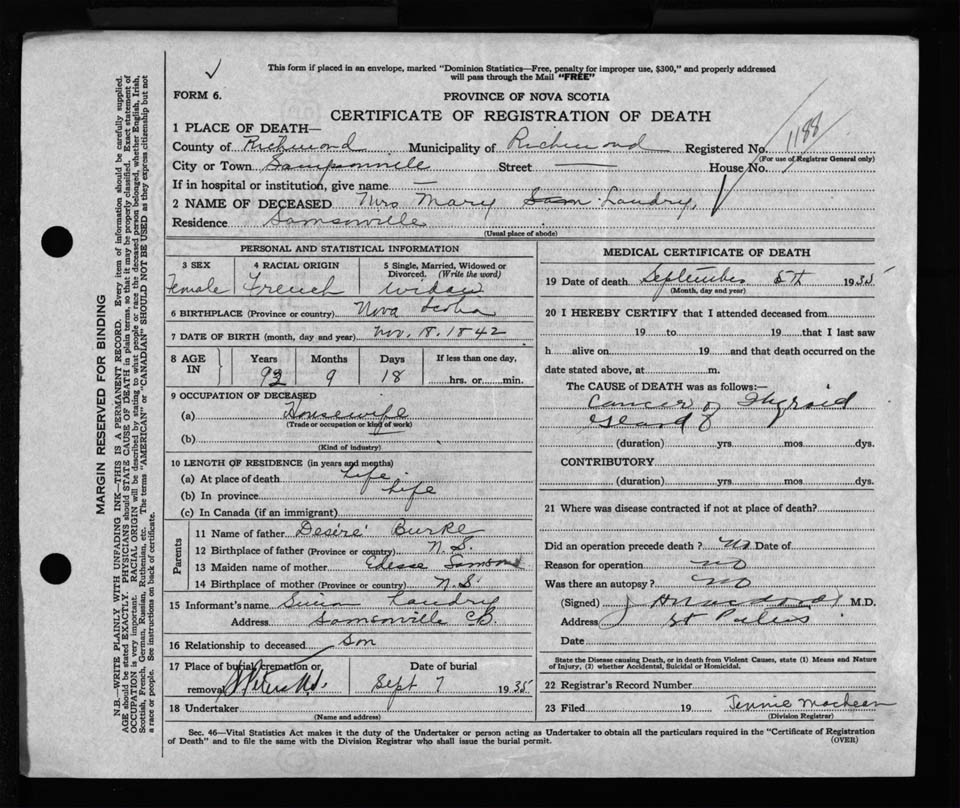 This form if placed in an envelope, marked "Dominion Statistics—Free, penalty for improper use, $300," and properly addressed
will pass through the Mail "FREE"
FORM 6.
PROVINCE OF NOVA SCOTIA
CERTIFICATE OF REGISTRATION OF DEATH
1188
1 PLACE OF DEATH—
County of Richmond Municipality of Richmond Registered No.
(For use of Registrar General only)
City or Town Sampsonville Street — House No.
If in hospital or institution, give name —
2 NAME OF DECEASED Mrs Mary Landry
Residence Samsonville
(Usual place of abode)
PERSONAL AND STATISTICAL INFORMATION
3 SEX 4 RACIAL ORIGIN 5 Single, Married, Widowed or Divorced. (Write the word)
Female French widow
6 BIRTHPLACE (Province or country) Nova Scotia
7 DATE OF BIRTH (month, day and year) Nov. 18. 1842
8 AGE IN Years Months Days If less than one day,
92 9 18 hrs. or min.
9 OCCUPATION OF DECEASED
(a) Housewife
(Trade or occupation or kind of work)
(b)
(Kind of industry)
10 LENGTH OF RESIDENCE (in years and months)
(a) At place of death Life
(b) In province Life
(c) In Canada (if an immigrant)
Parents
11 Name of father Desiré Burke
12 Birthplace of father (Province or country) N.S.
13 Maiden name of mother Edesse Samson
14 Birthplace of mother (Province or country) N.S.
15 Informant's name Simon Landry
Address Samsonville C.B.
16 Relationship to deceased Son
17 Place of burial, cremation or Date of burial
removal Sept 7 1935
18 Undertaker
(Name and address)
MEDICAL CERTIFICATE OF DEATH
19 Date of death September 5th 1935
(Month, day and year)
20 I HEREBY CERTIFY that I attended deceased from
19 to 19 that I last saw
h alive on 19 and that death occurred on the
date stated above, at m.
The CAUSE of DEATH was as follows:—
Cancer of Thyroid
Gland
(duration) yrs. mos. dys.
CONTRIBUTORY
(duration) yrs. mos. dys.
21 Where was disease contracted if not at place of death?
Did an operation precede death? No Date of
Reason for operation no
Was there an autopsy? no
(Signed) M.D.
Address St Peters
Date
State the Disease causing Death, or in death from Violent Causes, state (1) Means and Nature
of Injury, (2) whether Accidental, Suicidal or Homicidal.
22 Registrar's Record Number
23 Filed 19 Jennie
(Division Registrar)
Sec. 46—Vital Statistics Act makes it the duty of the Undertaker or person acting as Undertaker to obtain all the particulars required in the "Certificate of Registration
of Death" and to file the same with the Division Registrar who shall issue the burial permit.
(OVER)
MARGIN RESERVED FOR BINDING
N.B.—WRITE PLAINLY WITH UNFADING INK—THIS IS A PERMANENT RECORD. Every item of information should be carefully supplied.
AGE should be stated EXACTLY. PHYSICIANS should STATE CAUSE OF DEATH in plain terms, so that it may be properly classified. Exact statement of
OCCUPATION is very important. RACIAL ORIGIN will be described by stating to what people or race the deceased person belonged, whether English, Irish,
Scottish, French, German, Russian, Ruthenian, etc. The terms "AMERICAN" or "CANADIAN" SHOULD NOT BE USED as they express citizenship but not
a race or people. See instructions on back of certificate.